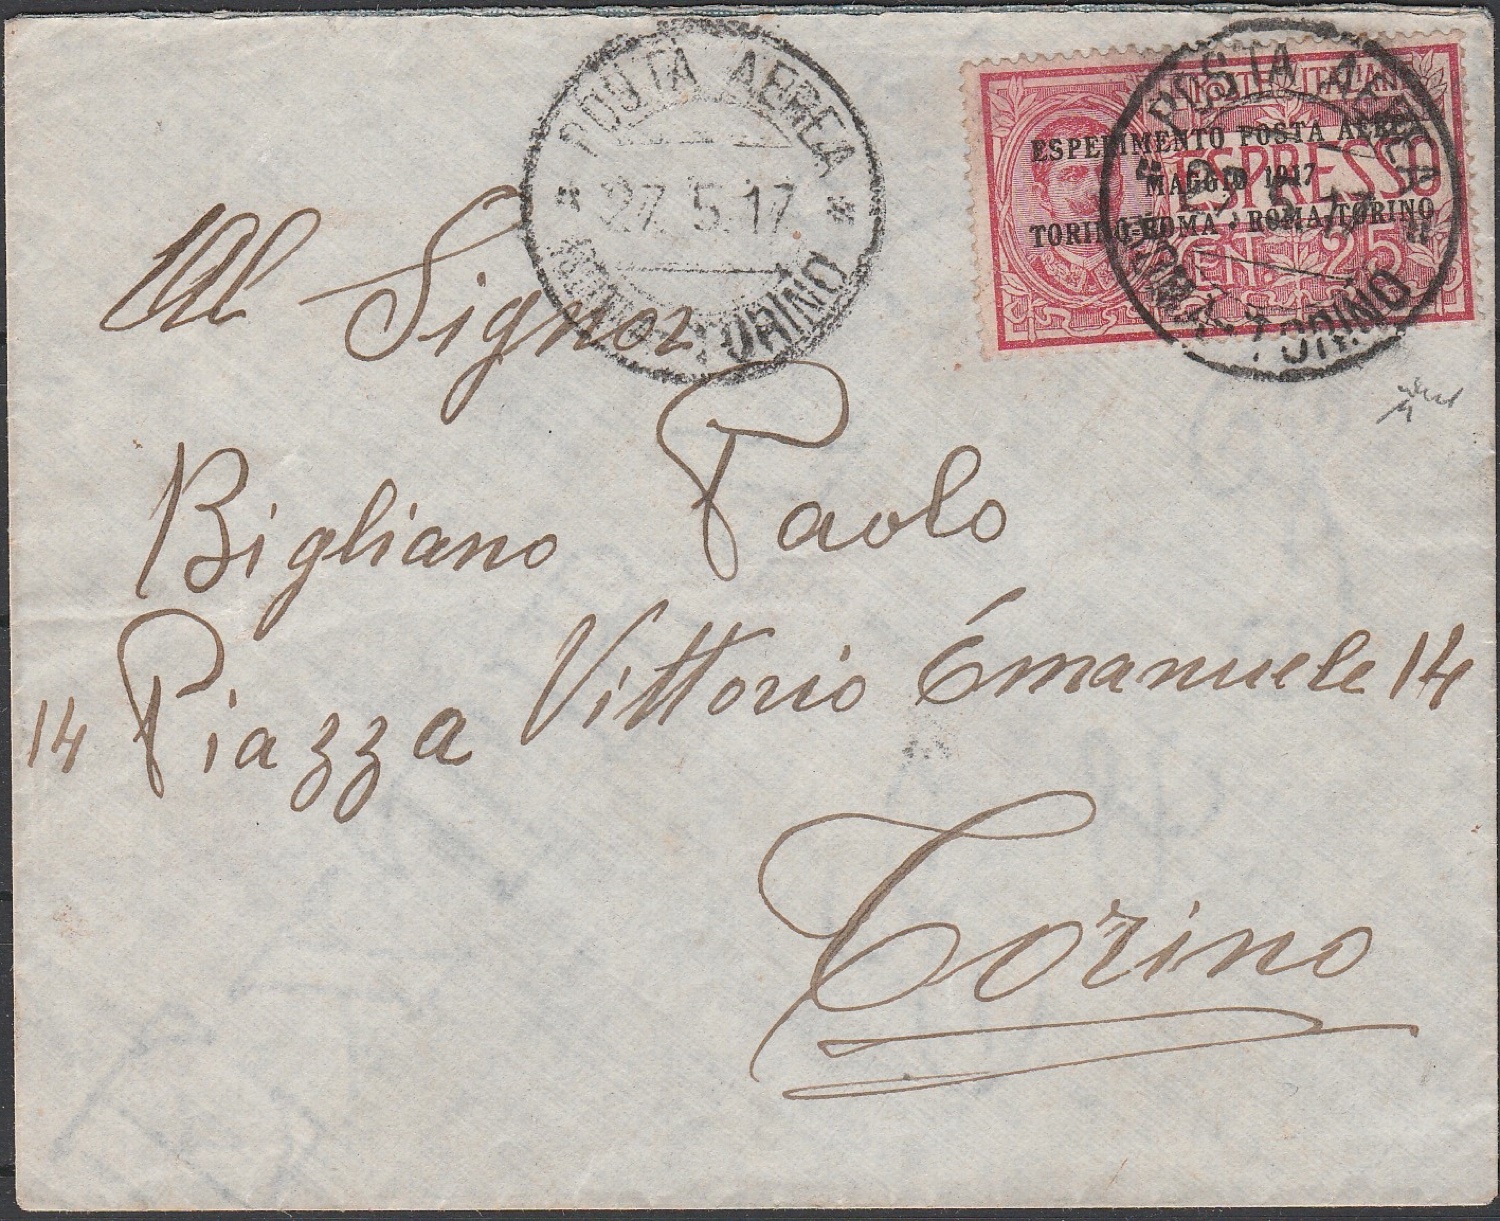 POSTA AEREA
* 27.5.17 *
ROMA-TORINO
POSTE ITALIANE
ESPRESSO
CENT. 25
ESPERIMENTO POSTA AEREA
MAGGIO 1917
TORINO-ROMA · ROMA-TORINO
POSTA AEREA
27.5.17
TORINO
Al Signor
Bigliano Paolo
14 Piazza Vittorio Emanuele 14
Torino